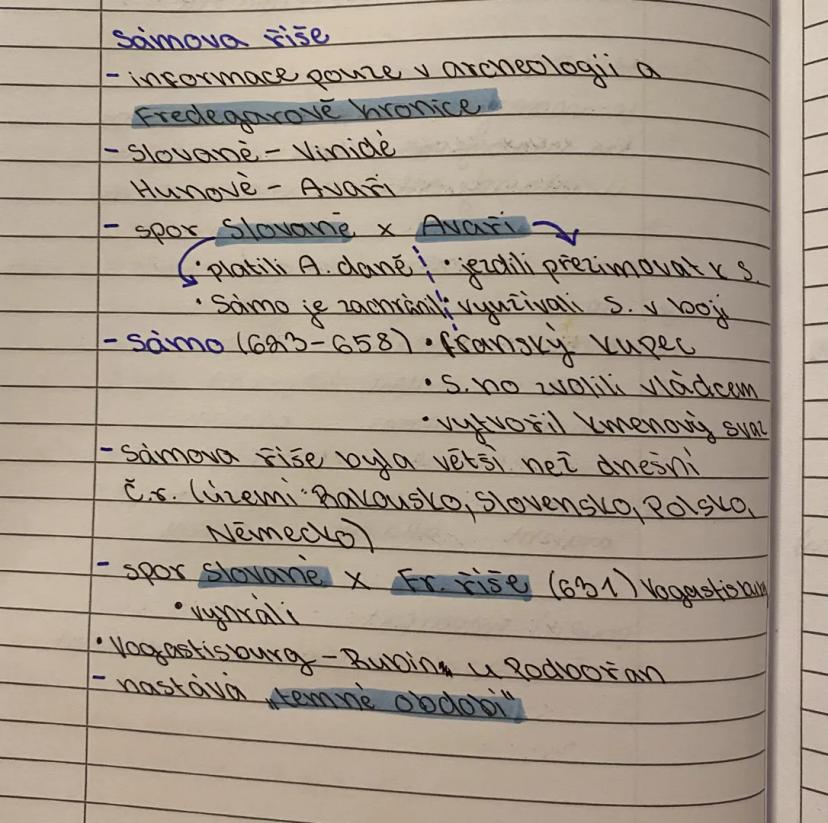 Sámova říše
- informace pouze v archeologji a
Fredegarově kronice
- Slované - Vinidé
Hunové - Avaři
- spor Slované x Avaři
• platili A. daně • jezdili přezimovat k S.
• Sámo je zachránil • využívali S. v boji
- Sámo (623-658) • franský kupec
• S. ho zvolili vládcem
• vytvořil kmenový svaz
- Sámova říše byla větší než dnešní
Č.r. (území: Rakousko, Slovensko, Polsko,
Německo)
- spor Slované x Fr. říše (631) Vogastisburg
• vyhráli
• Vogastisburg - Rubín u Podbořan
- nastává "temné období"